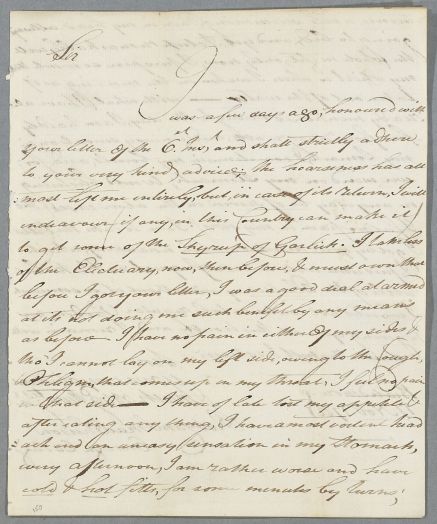 Sir
I
was a few days ago, honoured with
your letter of the 6th Inst, and shall strictly adhere
to your very kind advice; the hoarseness has al=
most left me entirely, but, in case of its return, I will
endeavour (if any, in this Country can make it)
to get some of the Shyrup of Garlick. I take less
of the Electuary, now, than before, & must own that
before I got your letter, I was a good deal alarmed
at its not doing me such benefit by any means
as before — I have no pain in either of my sides &
tho' I cannot lay on my left side, owing to the Cough,
& Phlegm, that comes up in my throat, I feel no pain
in that side — I have of late lost my appetite &
after eating any thing, I have a most violent head
ach and an uneasy sensation in my Stomach,
every afternoon, I am rather worse and have
cold & hot fitts, for some minutes by turns;